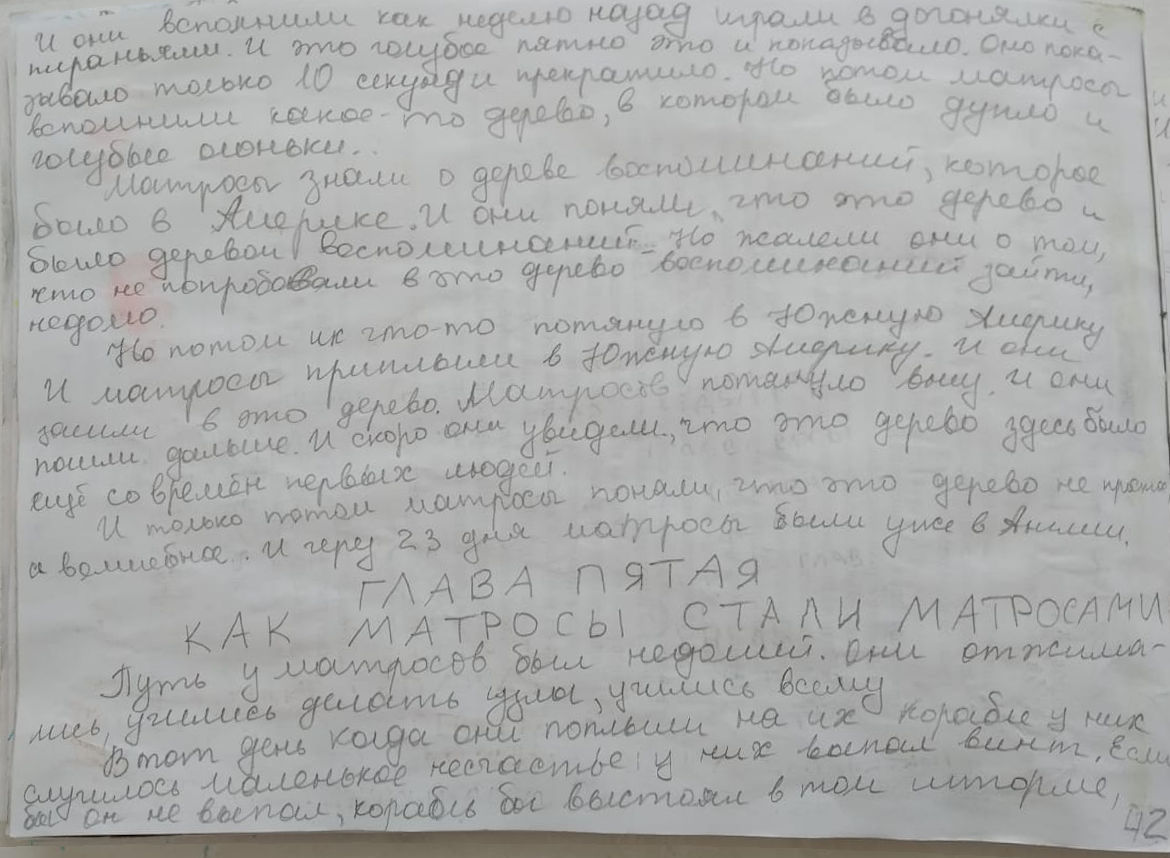 И они вспомнили как неделю назад играли в догонялки с
пираньями. И это голубое пятно это и показывало. Оно пока-
зывало только 10 секунд и прекратило. Но потом матросы
вспомнили какое-то дерево, в котором было дупло и
голубые огоньки...
Матросы знали о дереве воспоминаний, которое
было в Америке. И они поняли, что это дерево и
было деревом воспоминаний. Но жалели они о том,
что не попробовали в это дерево воспоминаний зайти,
недолго.
Но потом их что-то потянуло в Южную Америку
И матросы приплыли в Южную Америку. И они
зашли в это дерево. Матросов потянуло вниз. И они
пошли дальше. И скоро они увидели, что это дерево здесь было
ещё со времён первых людей.
И только потом матросы поняли, что это дерево не просто
а волшебное.. И через 23 дня матросы были уже в Англии.
ГЛАВА ПЯТАЯ
КАК МАТРОСЫ СТАЛИ МАТРОСАМИ
Путь у матросов был недолгий. Они отжима-
лись, учились делать узлы, учились всему
В тот день когда они поплыли на их корабле у них
случилось маленькое несчастье: у них выпал винт. Если
бы он не выпал, корабль бы выстоял в том шторме,
42